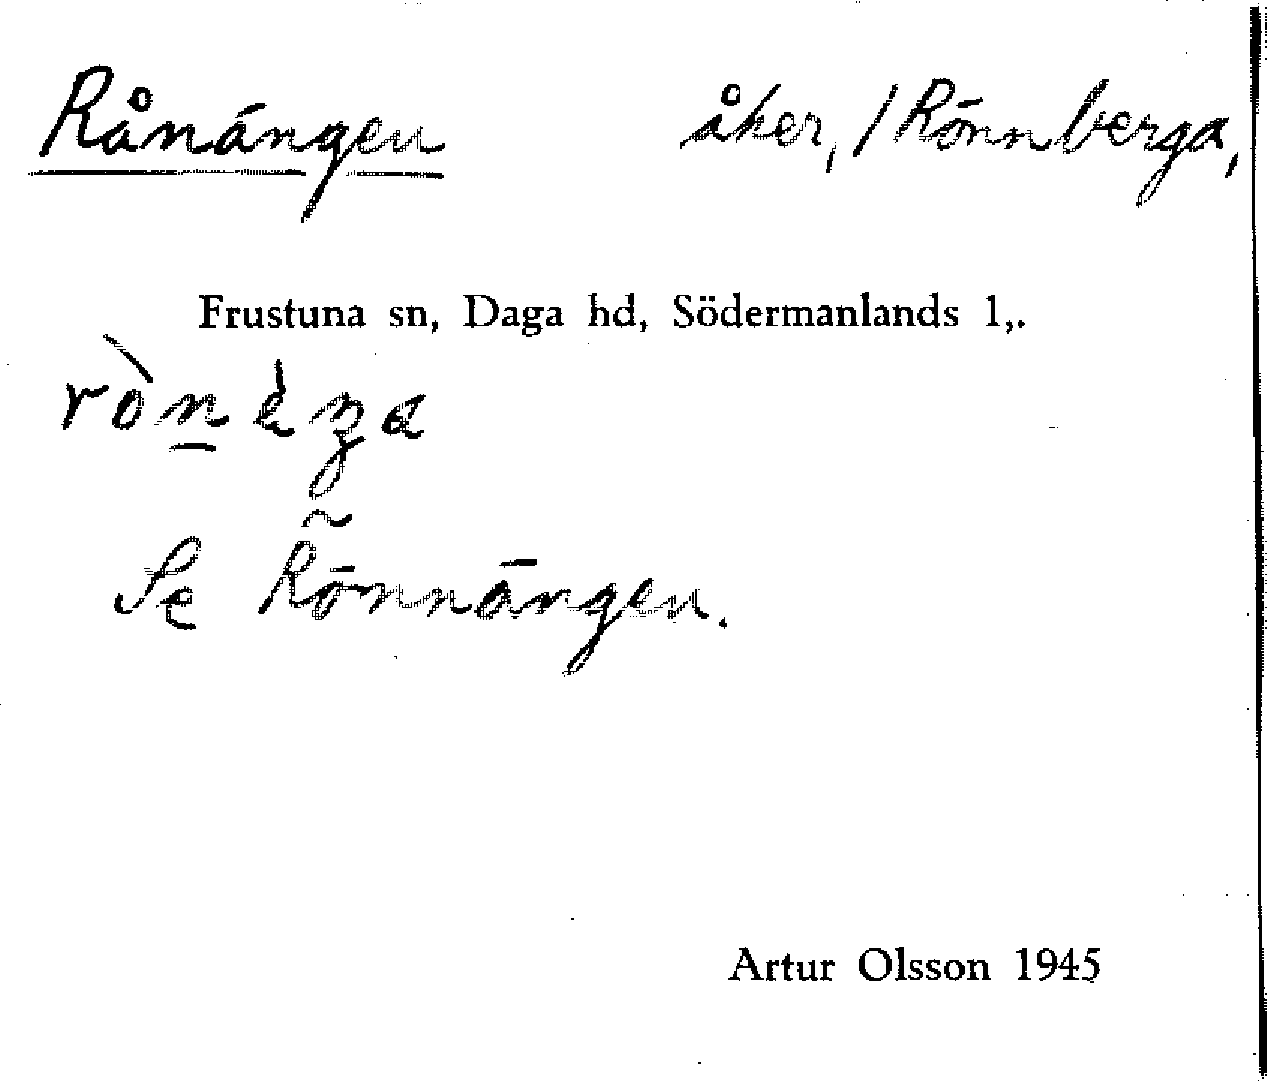 Rånängen åker, / Rönnberga,
Frustuna sn, Daga hd, Södermanlands l,.
Se Rönnängen.
Artur Olsson 1945